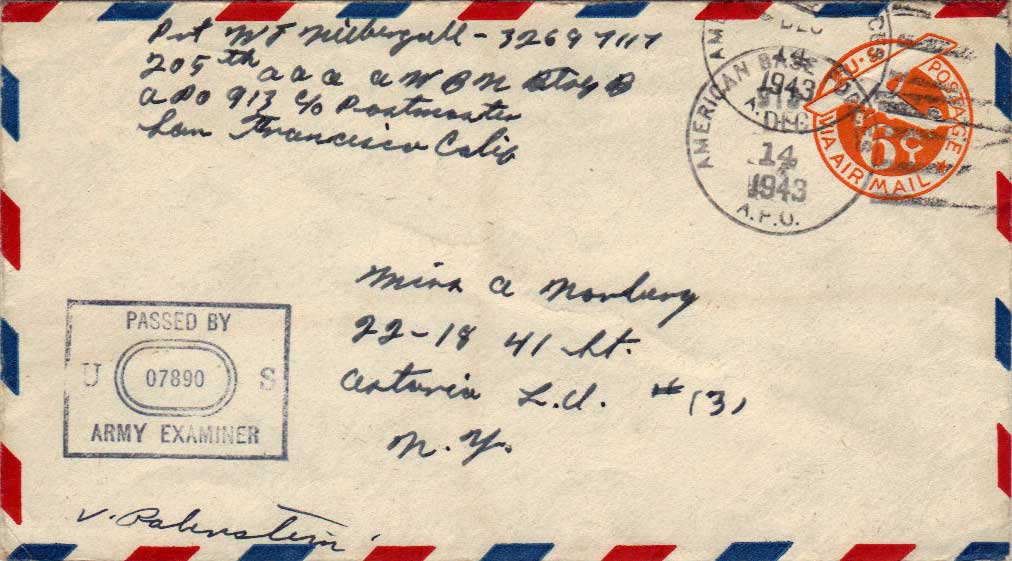 Pvt W F Niebergall - 32697117
205th a a a a W B N Btry B
APO 913 c/o Postmaster
San Francisco Calif
AMERICAN BASE
DEC
14
1943
A.P.O.
DEC
14
1943
U.S. POSTAGE
6¢
VIA AIR MAIL
Miss A Norburg
22-18 41 St.
Astoria L.I. #(3)
N.Y.
PASSED BY
U 07890 S
ARMY EXAMINER